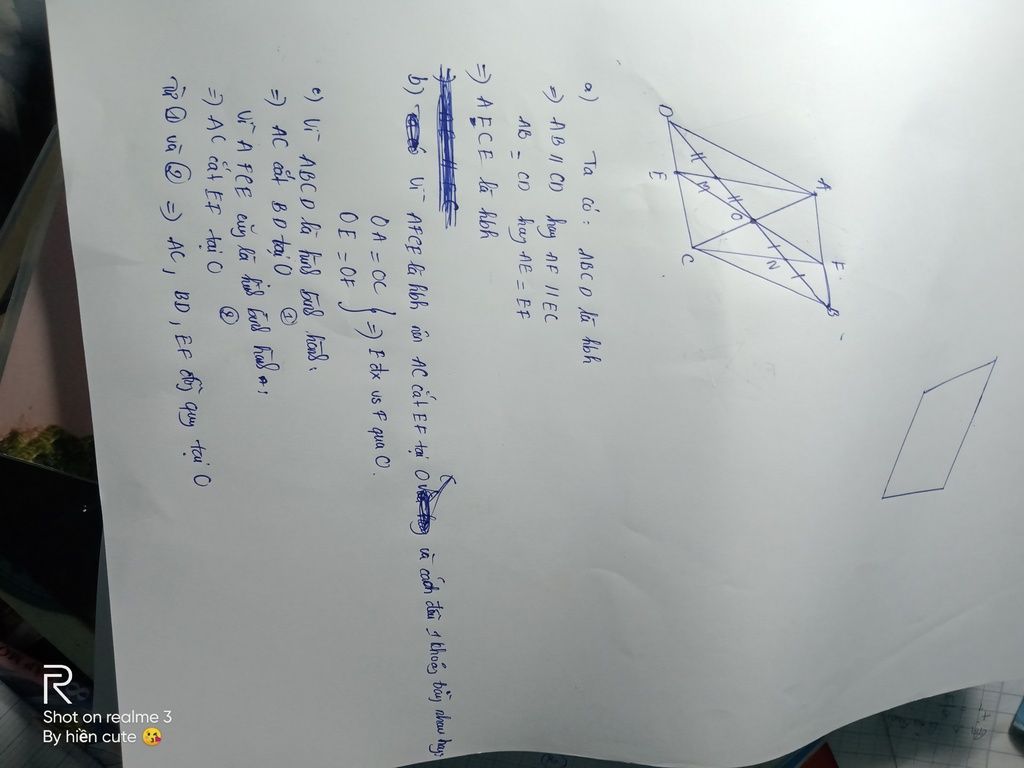 A
F
B
D
H
M
H
O
N
E
C
a) Ta có: ABCD là hbh
=) AB // CD hay AF // EC
AB = CD hay AE = EF
=) AFCE là hbh
b) Vì AFCE là hbh nên AC cắt EF tại O và cách đều 1 khoảng bằng nhau hay
OA = OC
OE = OF } =) E đx vs F qua O.
c) Vì ABCD là hình bình hành:
=) AC cắt BD tại O ①
Vì AFCE cũng là hình bình hành
=) AC cắt EF tại O ②
Từ ① và ② =) AC, BD, EF đồng quy tại O
R
Shot on realme 3
By hiền cute 😘